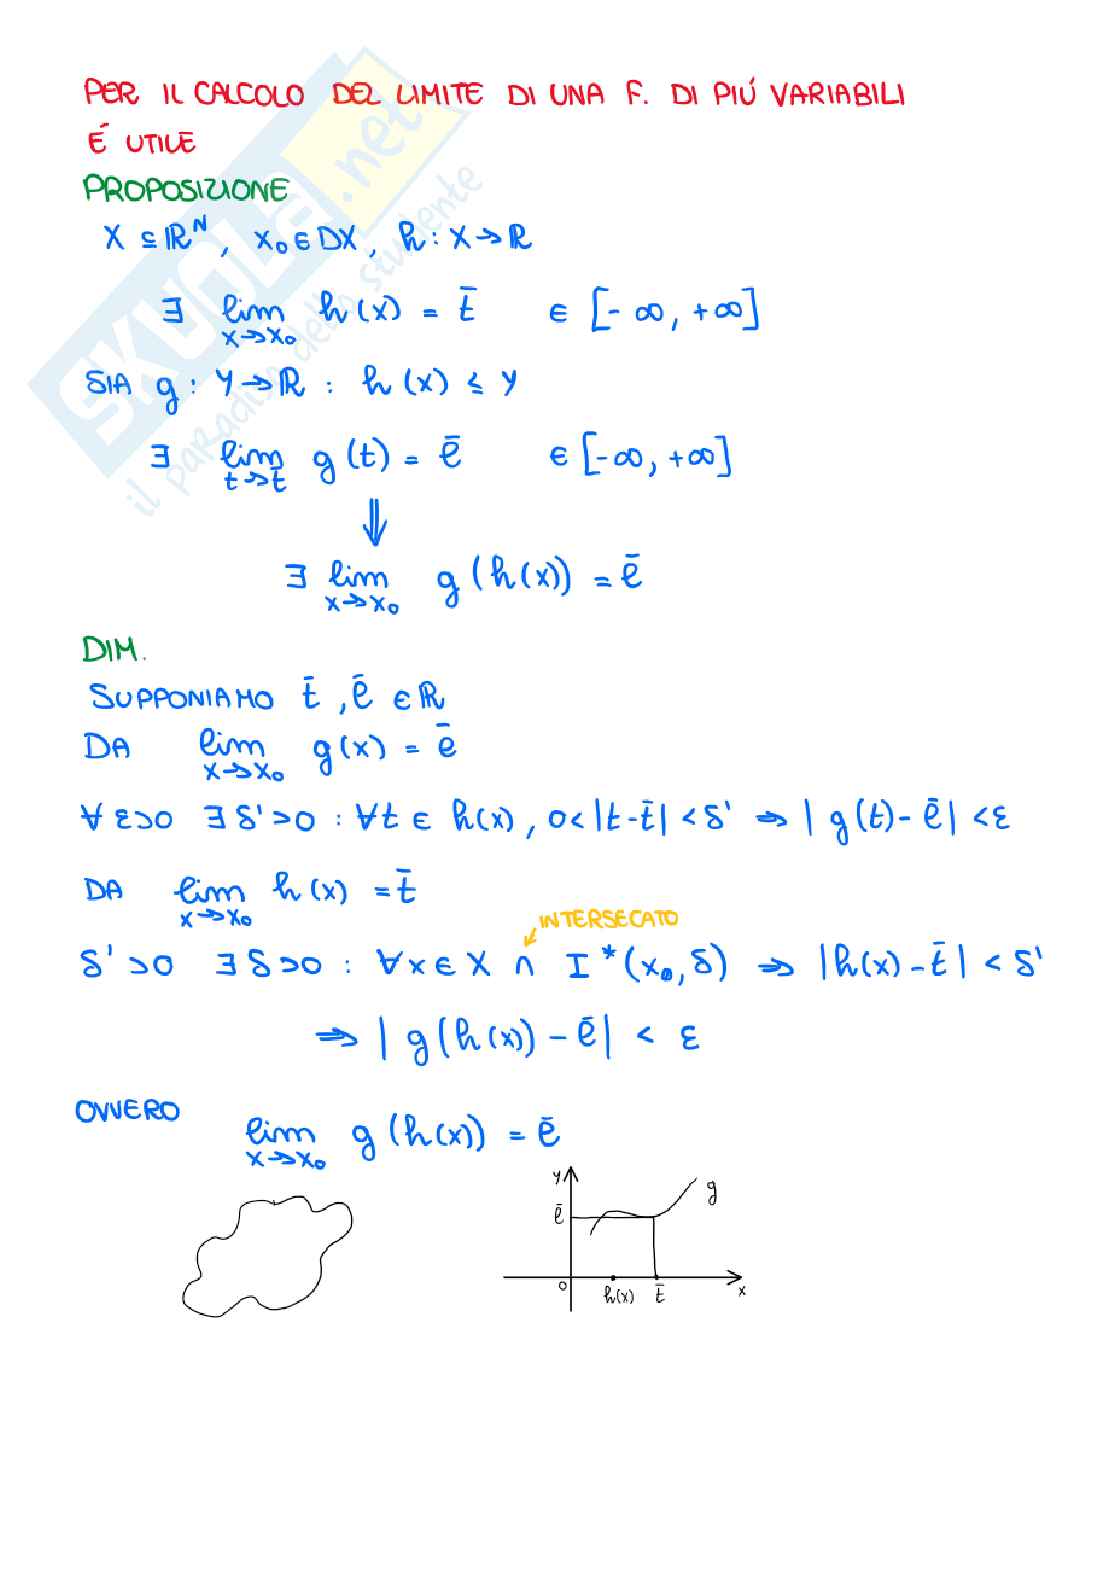 PER IL CALCOLO DEL LIMITE DI UNA F. DI PIÚ VARIABILI
É UTILE
PROPOSIZIONE
X ⊆ ℝᴺ, x₀ ∈ DX, h : X → ℝ
∃ lim x→x₀ h(x) = t̄ ∈ [-∞, +∞]
SIA g : Y → ℝ : h(x) ≤ Y
∃ lim t→t̄ g(t) = ē ∈ [-∞, +∞]
⇓
∃ lim x→x₀ g(h(x)) = ē
DIM.
SUPPONIAMO t̄, ē ∈ ℝ
DA lim x→x₀ g(x) = ē
∀ ε>0 ∃ δ'>0 : ∀t ∈ h(x), 0<|t-t̄|<δ' ⇒ |g(t)-ē|<ε
DA lim x→x₀ h(x) = t̄
INTERSECATO
δ'>0 ∃ δ>0 : ∀x ∈ X ∩ I*(x₀,δ) ⇒ |h(x)-t̄| < δ'
⇒ |g(h(x))-ē| < ε
OVVERO lim x→x₀ g(h(x)) = ē
y
g
ē
0
h(x) t̄ x
SKUOLA.net
il paradiso dello studente